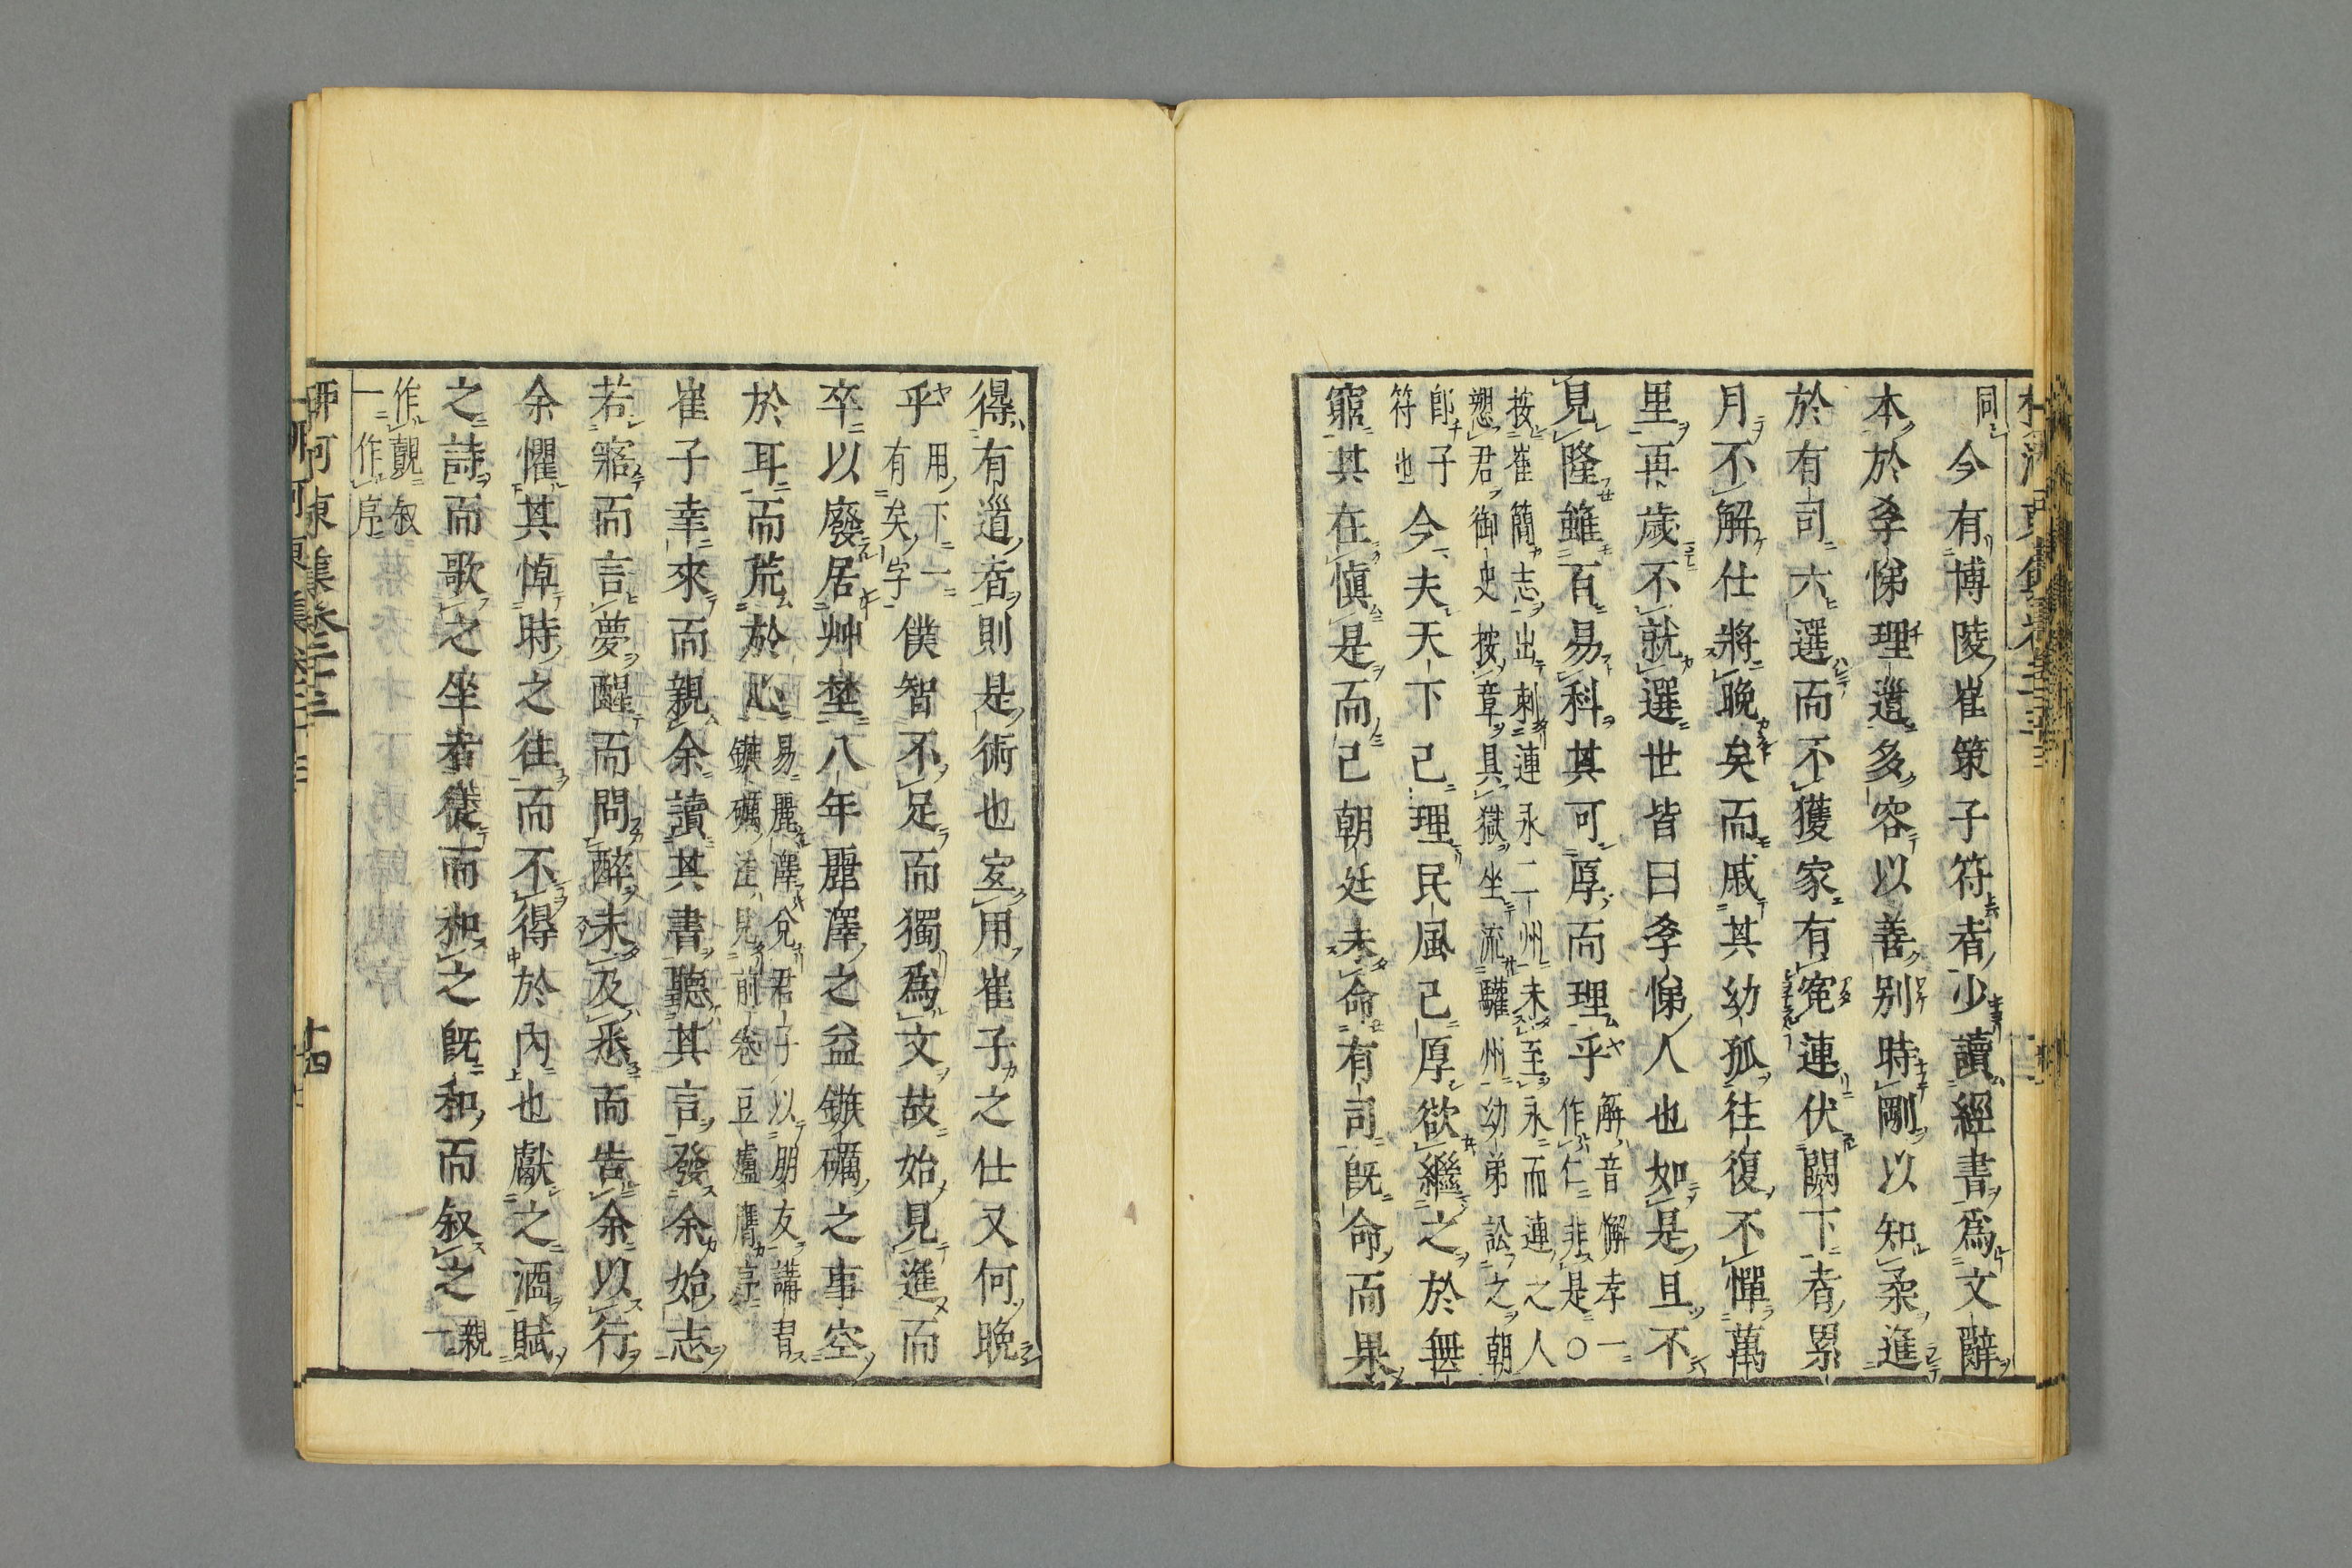 同今有博陵崔策子符者少讀經書爲文辭
本於孝悌理道多容以善别時剛以知柔進
於有司六選而不獲家有寃連伏闕下者累
月不解仕將晚矣而戚其幼孤往復不憚萬
里再歲不就選世皆曰孝悌人也如是且不
見隆雖百易科其可厚而理乎
解音懈孝一
作仁非是○
按崔簡志出刺連永二州未至永而連之人
愬君御史按章具獄坐流驩州幼弟訟之朝
郎子
符也
今夫天下已理民風已厚欲繼之於無
窮其在愼是而已朝廷未命有司既命而果
得有道者則是術也宜用崔子之仕又何晚
乎
用下一
有矣字
僕智不足而獨爲文故始見進而
卒以廢居艸埜八年麗澤之益鏃礪之事空
於耳而荒於心
易麗澤兌君子以朋友講習
鏃礪注見前卷豆盧膺序
崔子幸來而親余讀其書聽其言發余始志
若寤而言夢醒而問醉未及悉而告余以行
余懼其悼時之往而不得於内也獻之酒賦
之詩而歌之坐者從而和之既和而叙之
親
一
作覿叙
一作序
河東集卷二十三 十四